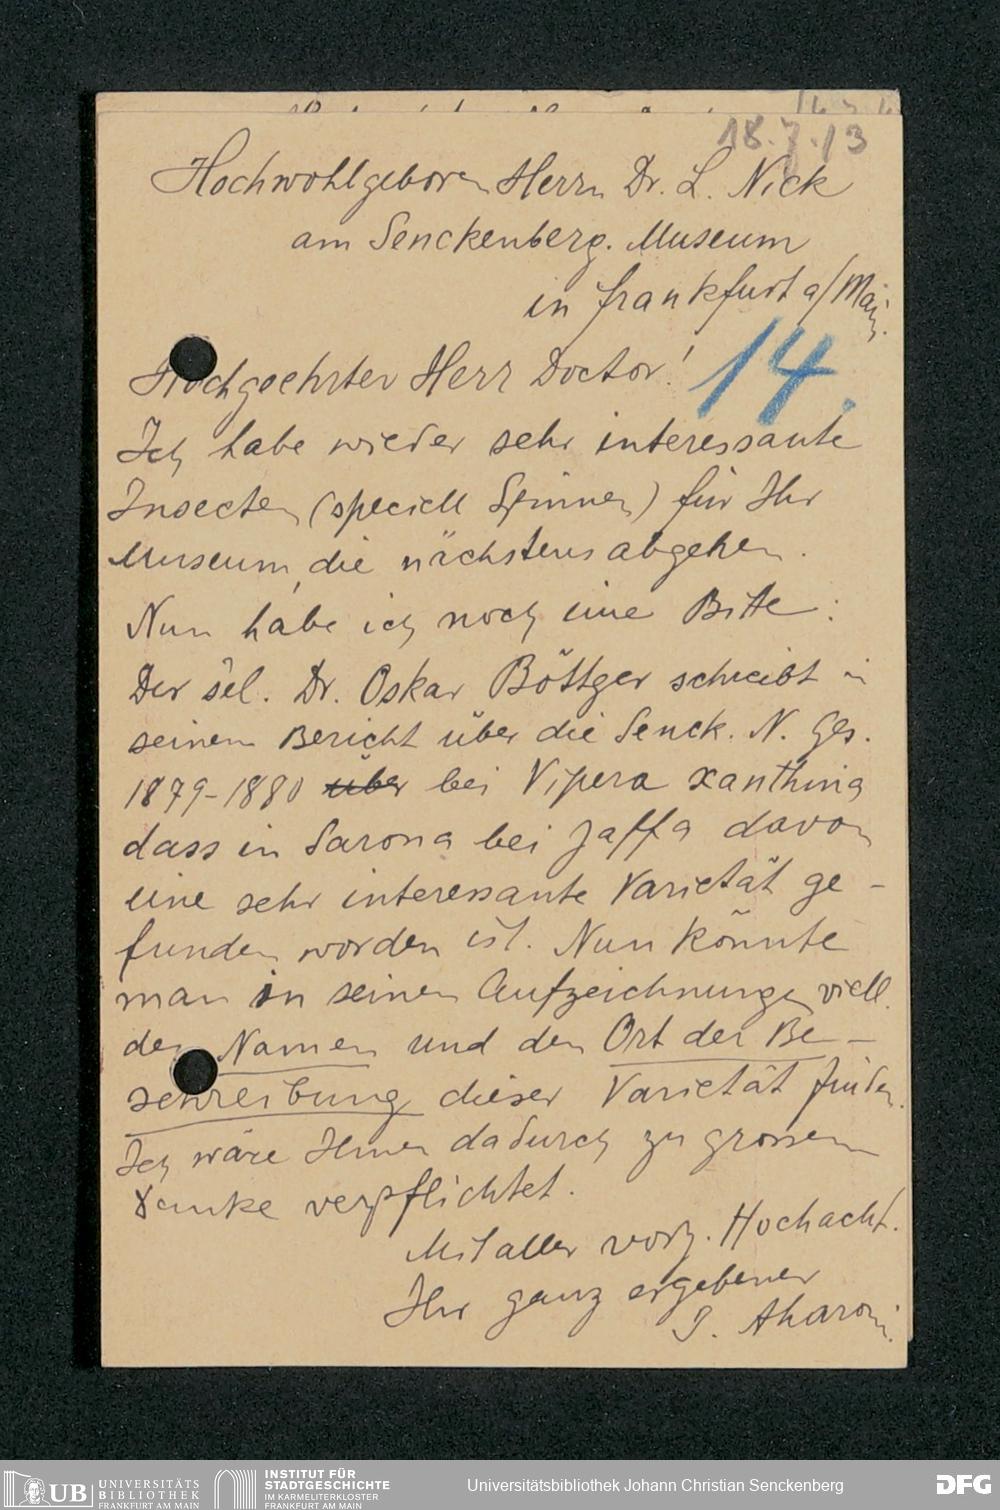 18.7.13
Hochwohlgeboren Herrn Dr. L. Nick
am Senckenberg. Museum
in Frankfurt a/Main.
14.
Hochgeehrter Herr Doctor!
Ich habe wieder sehr interessante
Insecten (speciell Spinnen) für Ihr
Museum, die nächstens abgehen.
Nun habe ich noch eine Bitte:
Der sel. Dr. Oskar Böttger schreibt in
seinem Bericht über die Senck. N. Ges.
1879-1880 über bei Vipera xanthina
dass in Sarona bei Jaffa davon
eine sehr interessante Varietät ge-
funden worden ist. Nun könnte
man in seinen Aufzeichnungen viell.
den Namen und den Ort der Be-
schreibung dieser Varietät finden.
Ich wäre Ihnen dadurch zu grossem
Danke verpflichtet.
Mit aller vorz. Hochacht.
Ihr ganz ergebener
J. Aharoni.
UB UNIVERSITÄTS
BIBLIOTHEK
FRANKFURT AM MAIN
INSTITUT FÜR
STADTGESCHICHTE
IM KARMELITERKLOSTER
FRANKFURT AM MAIN
Universitätsbibliothek Johann Christian Senckenberg
DFG